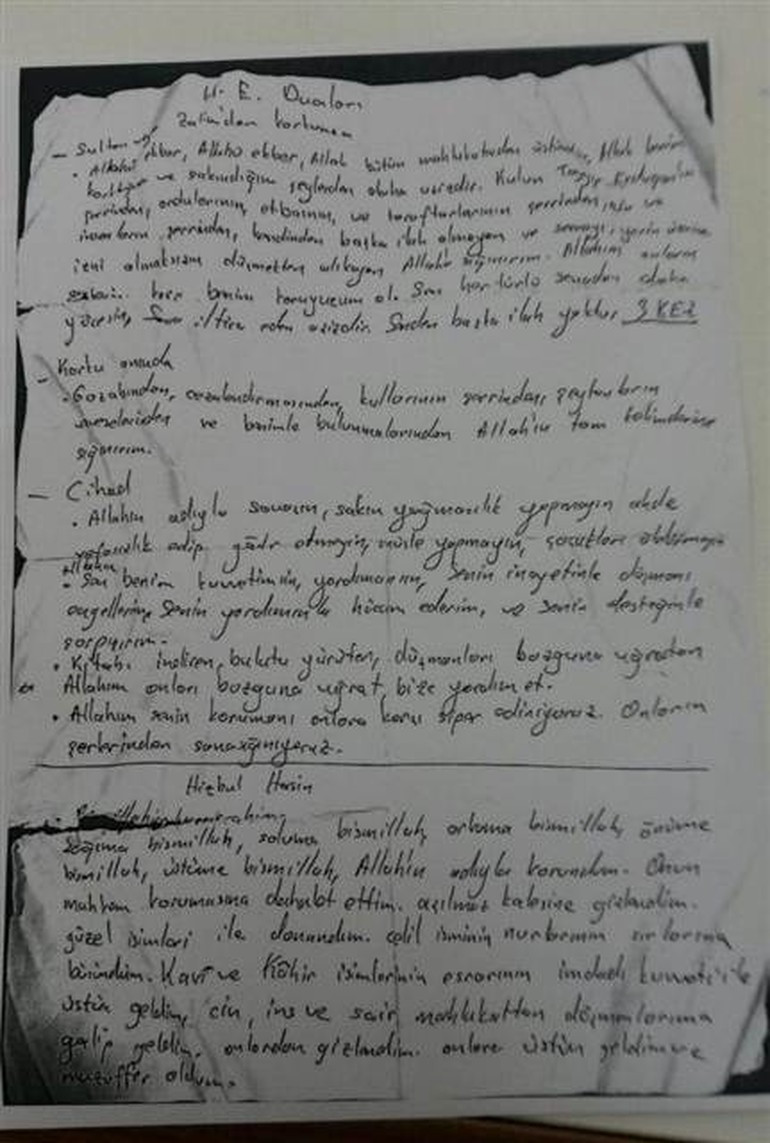 H. E. Duaları
Zalimden korkunca
— Sultan
• Allahü ekber, Allahü ekber, Allah bütün mahlukatından üstündür, Allah benim
ve sakındığım şeylerden daha yücedir. Kulun Tayyip
şerrinden, ordularının, etbaının, ve taraftarlarının şerrinden ve
insanların şerrinden, kendinden başka ilah olmayan ve semayı, yerin üzerine
izni olmaksızın düşmekten alıkoyan Allah'a sığınırım. Allahım onların
karşı benim koruyucum ol. Sen her türlü senadan daha
yücesin, iltica eden azizdir. Senden başka ilah yoktur 3 KEZ
- Korku anında
• Gazabından, cezalandırmasından, kullarının şerrinden, şeytanların
vesveselerinden ve benimle bulunmalarından Allah'ın tam kelimelerine
sığınırım.
— Cihad
• Allahın adıyla savaşın, sakın yağmacılık yapmayın ahde
vefasızlık edip gadr etmeyin, müsle yapmayın, çocukları öldürmeyin
Allahım
• Sen benim kuvvetimsin, yardımcımsın, Senin inayetinle düşmanı
engellerim, Senin yardımınla hücum ederim, ve senin desteğinle
çarpışırım.
• Kitabı indiren, bulutu yürüten, düşmanları bozguna uğratan
Allahım onları bozguna uğrat, bize yardım et.
• Allahım senin korumanı onlara karşı siper ediniyoruz. Onların
şerlerinden sana sığınıyoruz.
Hizbul Hasin
sağıma bismillah, soluma bismillah, arkama bismillah, önüme
bismillah, üstüme bismillah, Allah'ın adıyla korundum. Onun
muhkem korumasına dahalet ettim. açılmaz kalesine gizlendim.
güzel isimleri ile donandım. celil isminin nurlarının sırlarına
büründüm. Kavi ve Kâhir isimlerinin esrarının imdadı kuvveti ile
üstün geldim, cin, ins ve sair mahlukattan düşmanlarıma
galip geldim, onlardan gizlendim. onlara üstün geldim ve
muzaffer oldum.